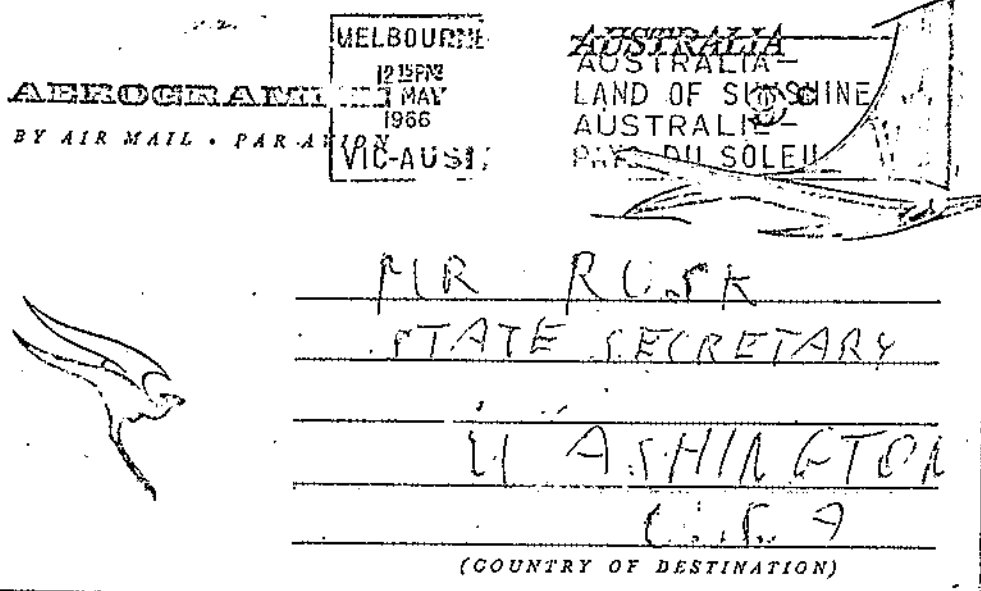 AEROGRAMME
BY AIR MAIL • PAR AVION
MELBOURNE
12 15 PM
MAY
1966
VIC-AUST
AUSTRALIA
AUSTRALIA-
LAND OF SUNSHINE
AUSTRALIE-
PAYS DU SOLEIL
MR RUSK
STATE SECRETARY
WASHINGTON
U.S.A
(COUNTRY OF DESTINATION)